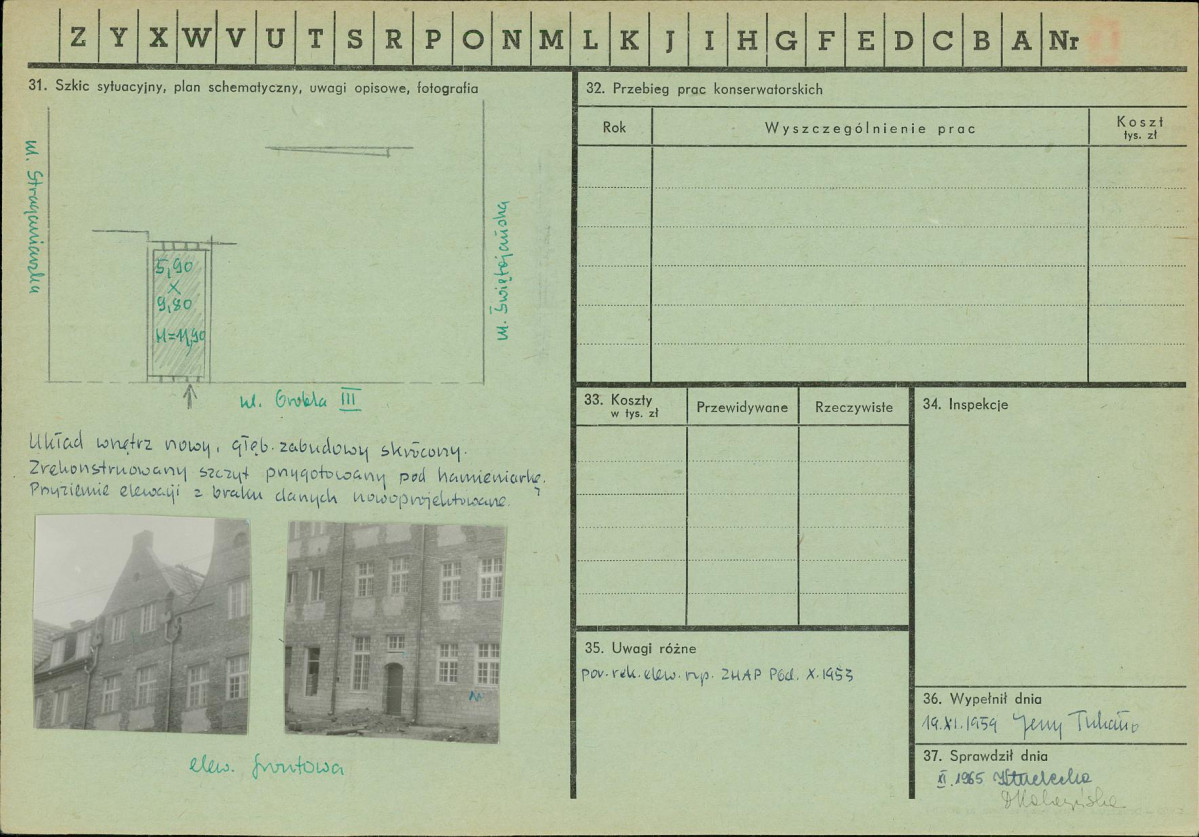 Z Y X W V U T S R P O N M L K J I H G F E D C B A Nr
31. Szkic sytuacyjny, plan schematyczny, uwagi opisowe, fotografia
ul. Straganiarska
5,90
x
9,80
H=11,90
ul. Świętojańska
ul. Grobla III
Układ wnętrz nowy, głęb. zabudowy skrócony.
Zrekonstruowany szczyt przygotowany pod kamieniarkę.
Przyziemie elewacji z braku danych nowoprojektowane.
elew. frontowa
32. Przebieg prac konserwatorskich
Rok Wyszczególnienie prac Koszt
tys. zł
33. Koszty
w tys. zł
Przewidywane Rzeczywiste
34. Inspekcje
35. Uwagi różne
por. rek. elew. wyp. ZHAP PGd. X.1953
36. Wypełnił dnia
19.XI.1959 Jerzy
37. Sprawdził dnia
XI.1965